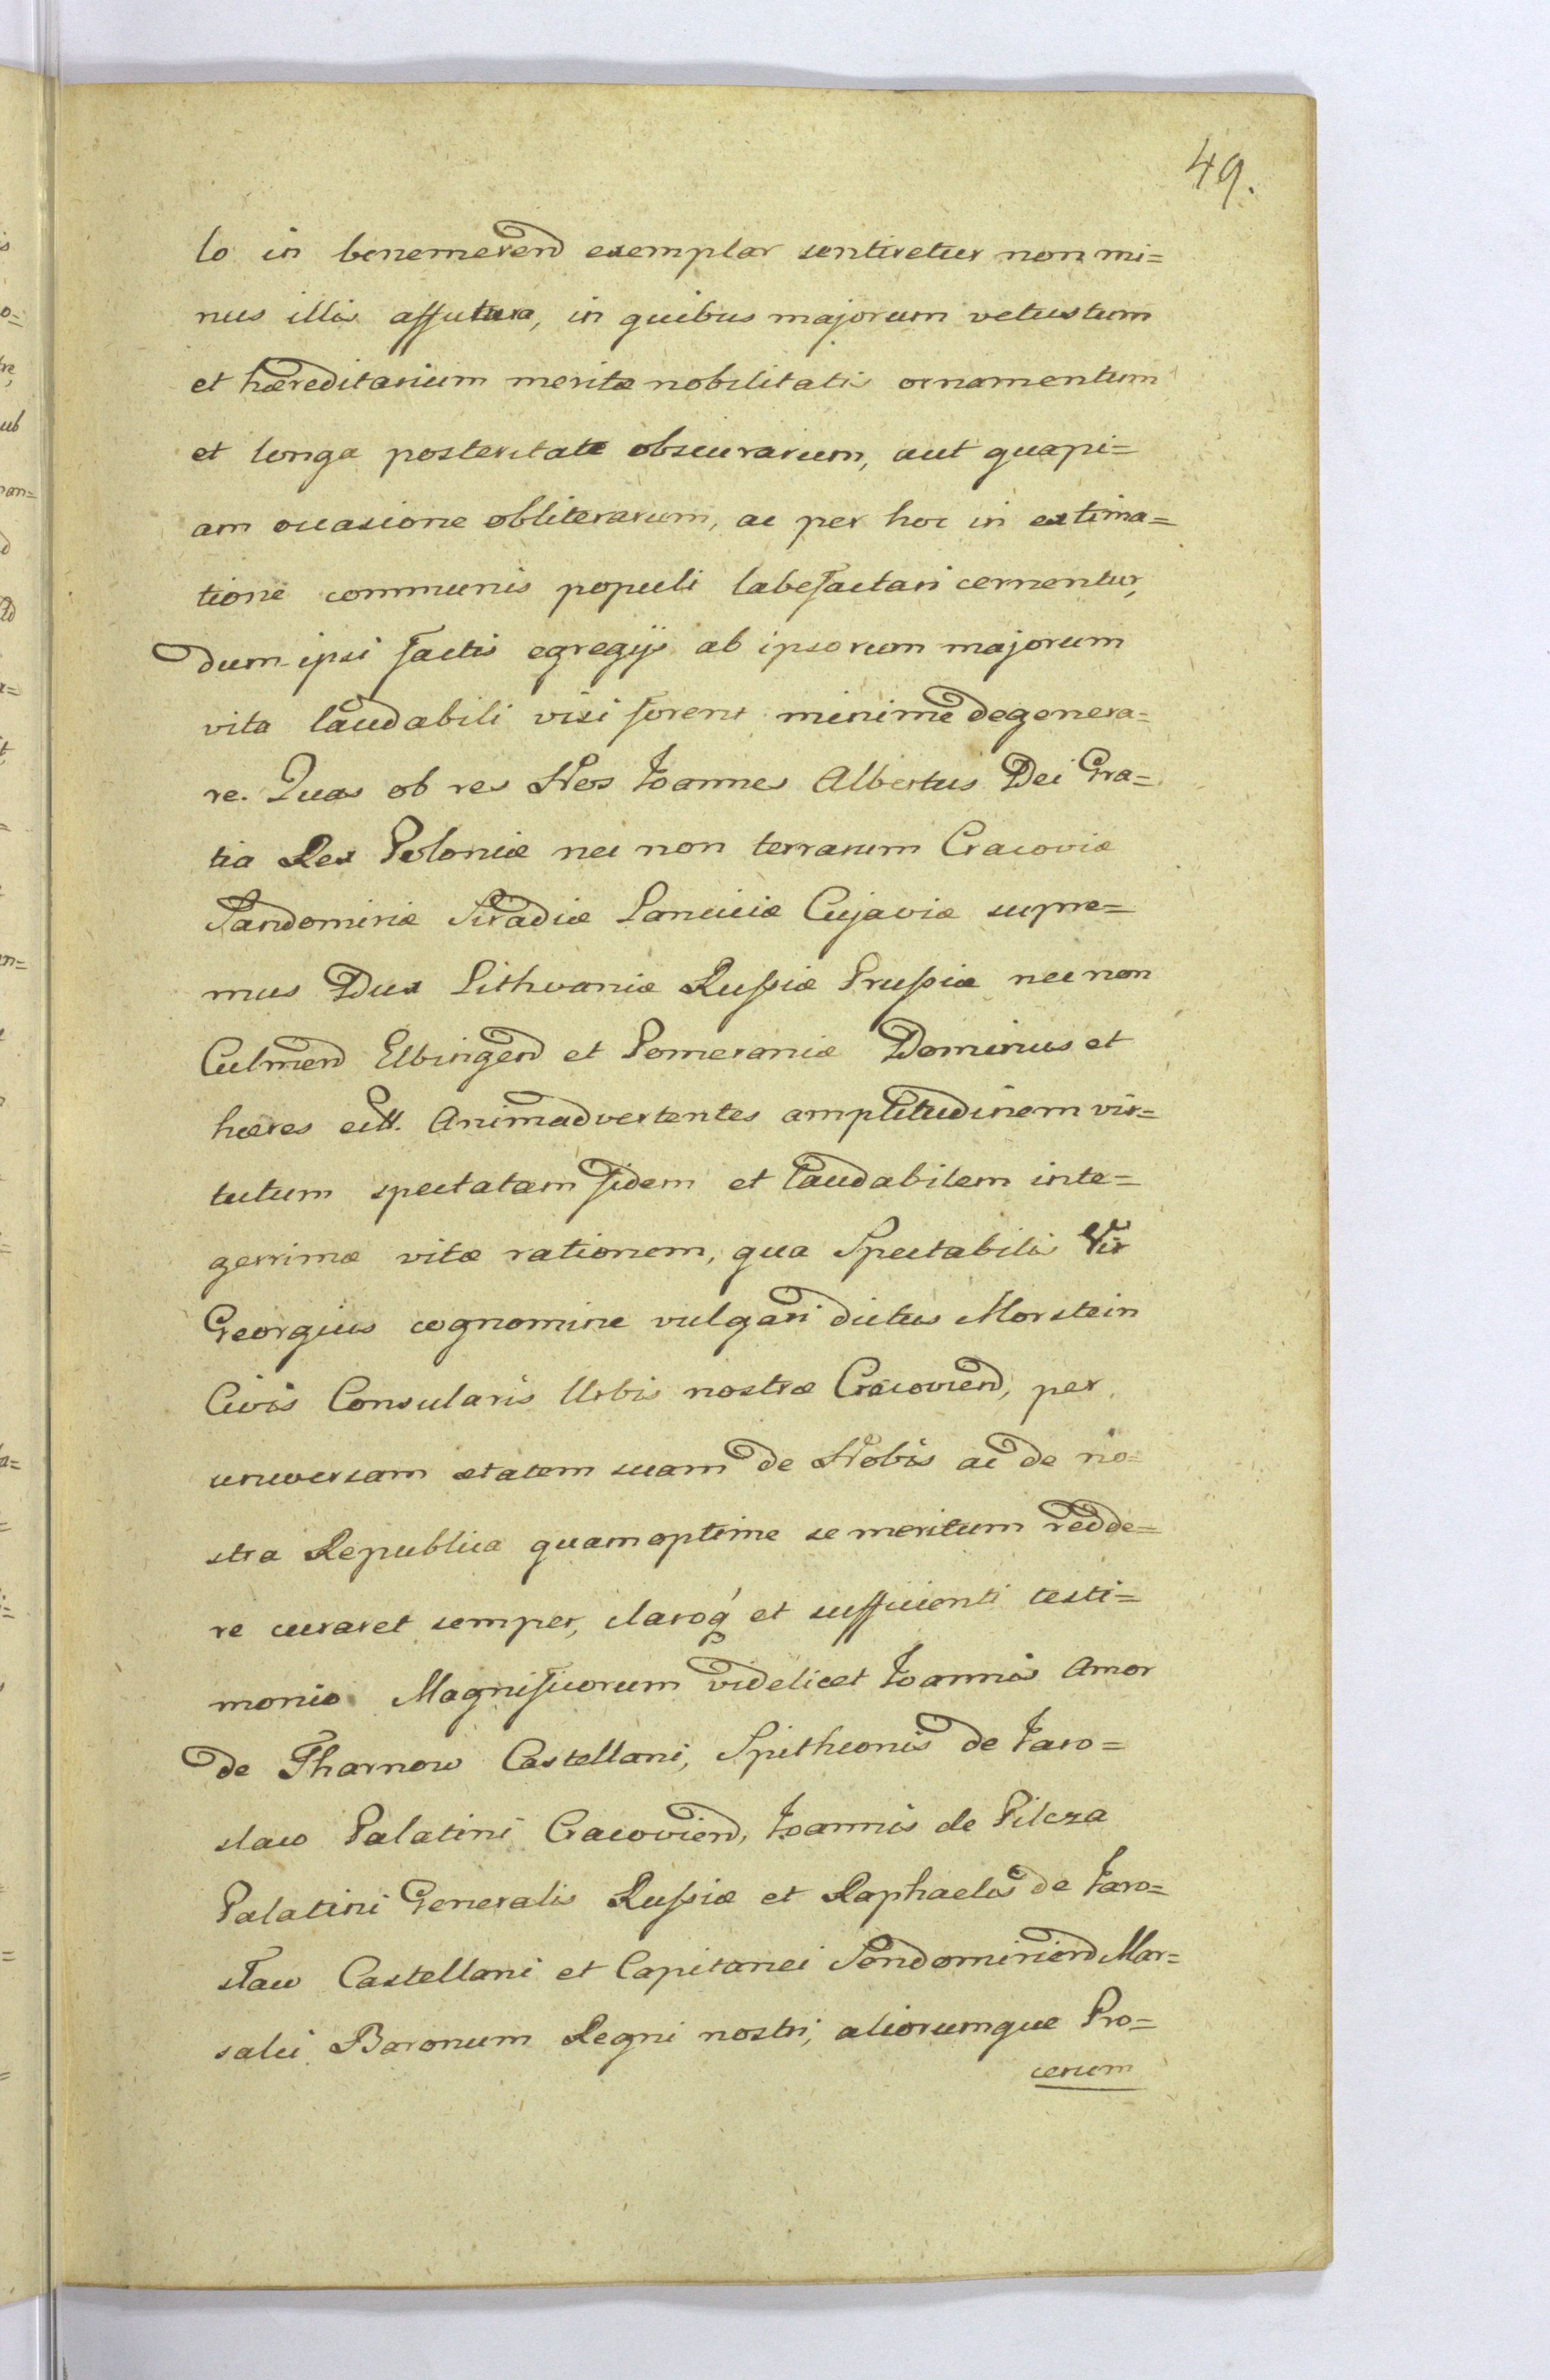 49.
lo in benemerend exemplar sentiretur non mi=
nus illis affutura, in quibus majorum vetustum
et hæreditarium meritæ nobilitatis ornamentum
et longa posteritate obscurarum, aut quapi=
am occasione obliterarum, ac per hoc in extima=
tione communis populi labefactari cernentur,
dum ipsi factis egregijs ab ipsorum majorum
vita laudabili visi forent minime degenera=
re. Quas ob res Nos Joannes Albertus Dei Gra=
tia Rex Poloniæ nec non terrarum Cracoviæ
Sandomiriæ Siradiæ Lanciciæ Cujaviæ supre=
mus Dux Lithvaniæ Russiæ Prussiæ nec non
Culmend Elbingend et Pomeraniæ Dominus et
hæres ectt. Animadvertentes amplitudinem vir=
tutum spectatam fidem et laudabilem inte=
gerrimæ vitæ rationem, qua Spectabilis Vir
Georgius cognomine vulgari dictus Morstein
Civis Consularis Urbis nostræ Cracoviend, per
universam ætatem suam de Nobis ac de no=
stra Republica quam optime se meritum redde=
re curaret semper, claroq́ et sufficienti testi=
monio Magnificorum videlicet Joannis Amor
de Tharnow Castellani, Spitheonis de Jaro=
slaw Palatini Cracoviend, Joannis de Pilcza
Palatini Generalis Russiæ et Raphaelis de Jaro=
slaw Castellani et Capitanei Sendomiriend Mar=
salci Baronum Regni nostri, aliorumque Pro=
cerum